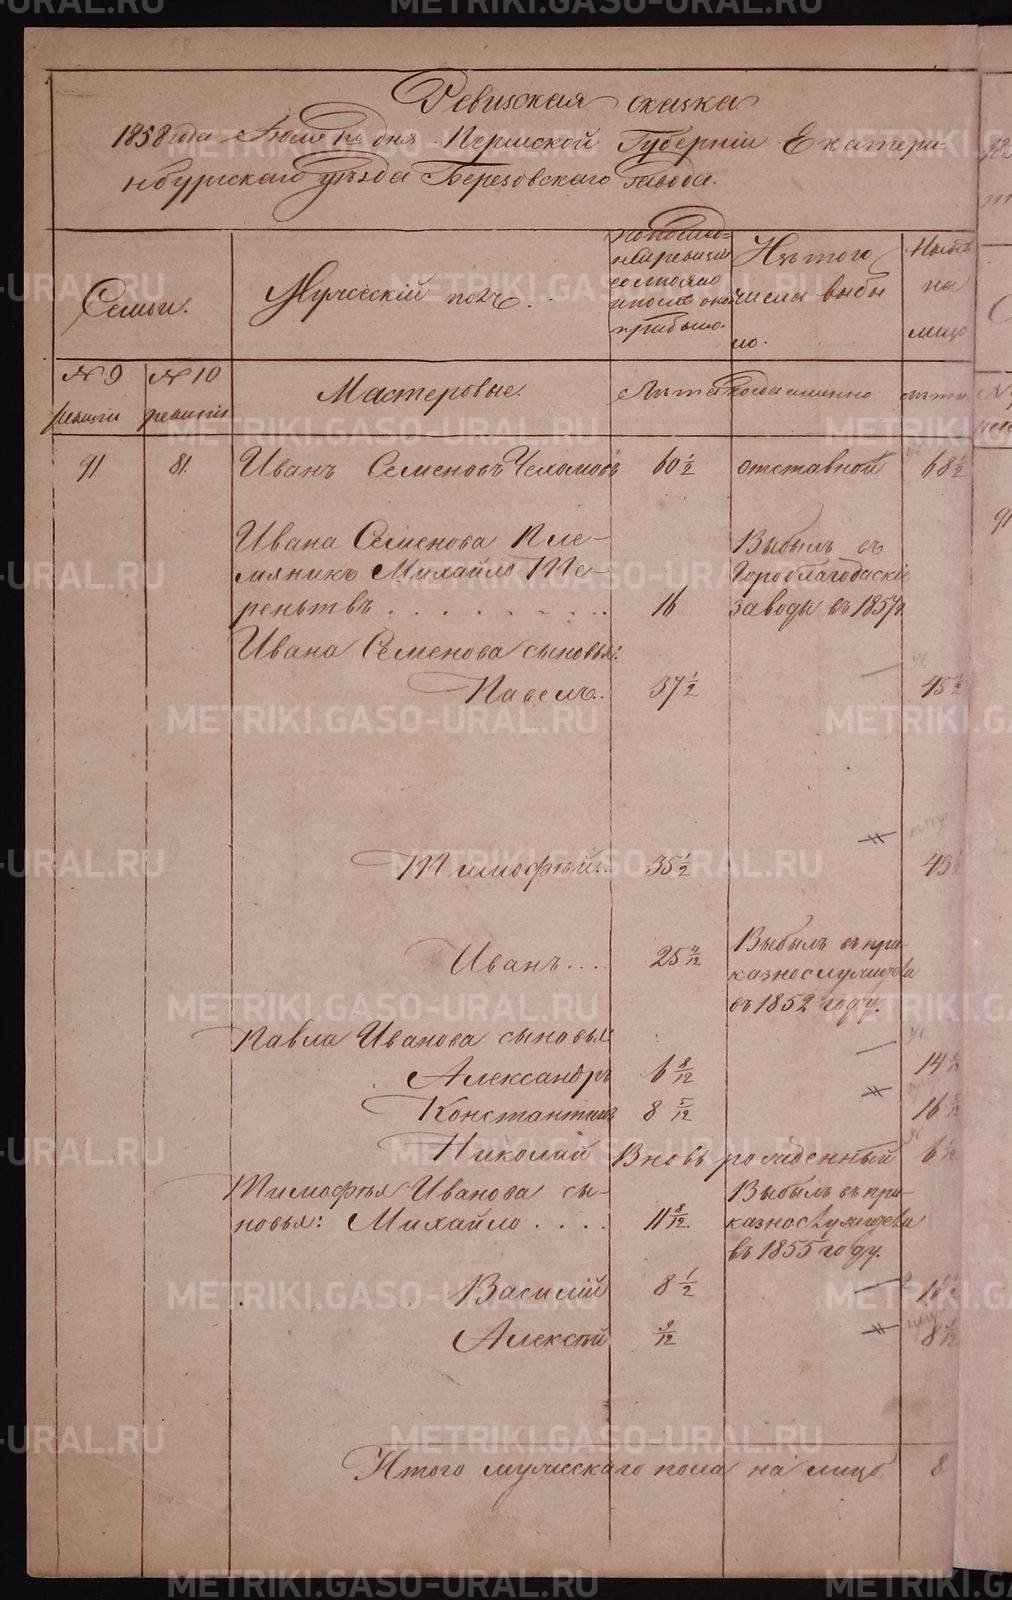 Ревизская сказка
1858 года Июля дня Пермской Губерніи Екатери-
нбургскаго уѣзда Березовскаго Завода.
Семьи.
Мужескій полъ.
По послѣд-
ней ревизіи
состояло
и послѣ оной
прибыло.
Изъ того
числа выбы
ло.
Нынѣ
на
лицо
№ 9
ревизіи
№ 10
ревизіи
Мастеровые.
Лѣта
лѣта
91 81. Иванъ Семеновъ Чехомовъ 60 1/2 отставной 68 1/2
Ивана Семенова Пле-
мяникъ Михайло Те-
рентьвъ . . . . . . . . . 16
Выбылъ въ
Гороблагодаскіе
заводы въ 1857 г.
Ивана Семенова сыновья:
Павелъ.. 37 1/2 45 1/2
Тимофѣй.. 35 1/2 43
Иванъ.... 25 4/12
Выбылъ въ при-
казнослужители
въ 1852 году.
Павла Иванова сыновья:
Александръ 6 8/12 14
Константинъ 8 5/12 16
Николай Вновь рожденный 6
Тимофѣя Иванова сы-
новья: Михайло . . . . 11 8/12.
Выбылъ въ при-
казнослужители
въ 1855 году.
Василій 8 1/2 16
Алексѣй 9/12 8
Итого мужескаго пола на лицо 8
METRIKI.GASO-URAL.RU